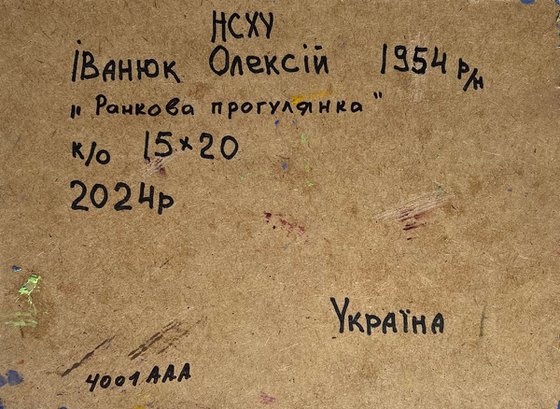 НСХУ
Іванюк Олексій 1954 р/н
„Ранкова прогулянка"
к/о 15×20
2024р
Україна
4001ААА